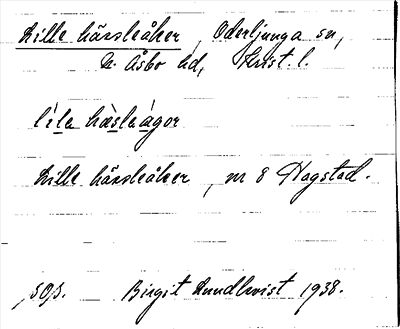 Lille hässleåker, Oderljunga sn,
N. Åsbo hd, Krist. l.
líle hæ̀sleågor
Lille hässleåker, nr 8 Hagstad.
Birgit Lundkvist 1938.